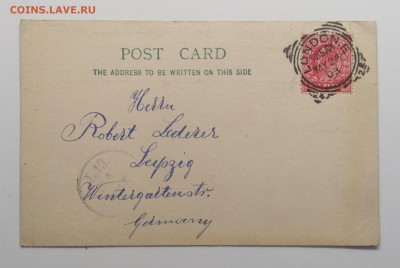 COINS.LAVE.RU
POST CARD
THE ADDRESS TO BE WRITTEN ON THIS SIDE
LONDON.E
MY 24
04
Herrn
Robert Lederer
Leipzig
Wintergartenstr.
Germany